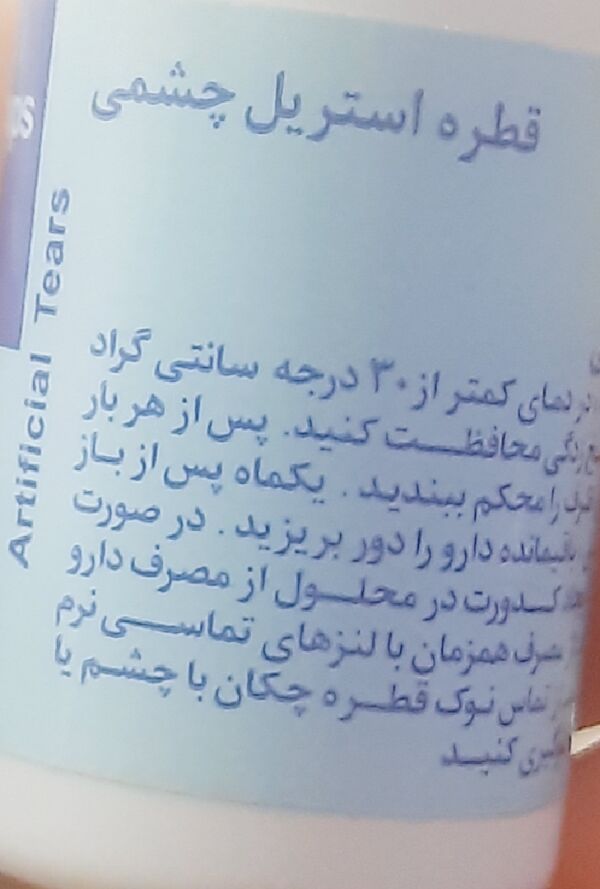 قطره استریل چشمی
در دمای کمتر از ۳۰ درجه سانتی گراد
محافظت کنید. پس از هر بار
را محکم ببندید. یکماه پس از باز
باقیمانده دارو را دور بریزید. در صورت
کدورت در محلول از مصرف دارو
مصرف همزمان با لنزهای تماسی نرم
تماس نوک قطره چکان با چشم یا
کنید
Artificial Tears